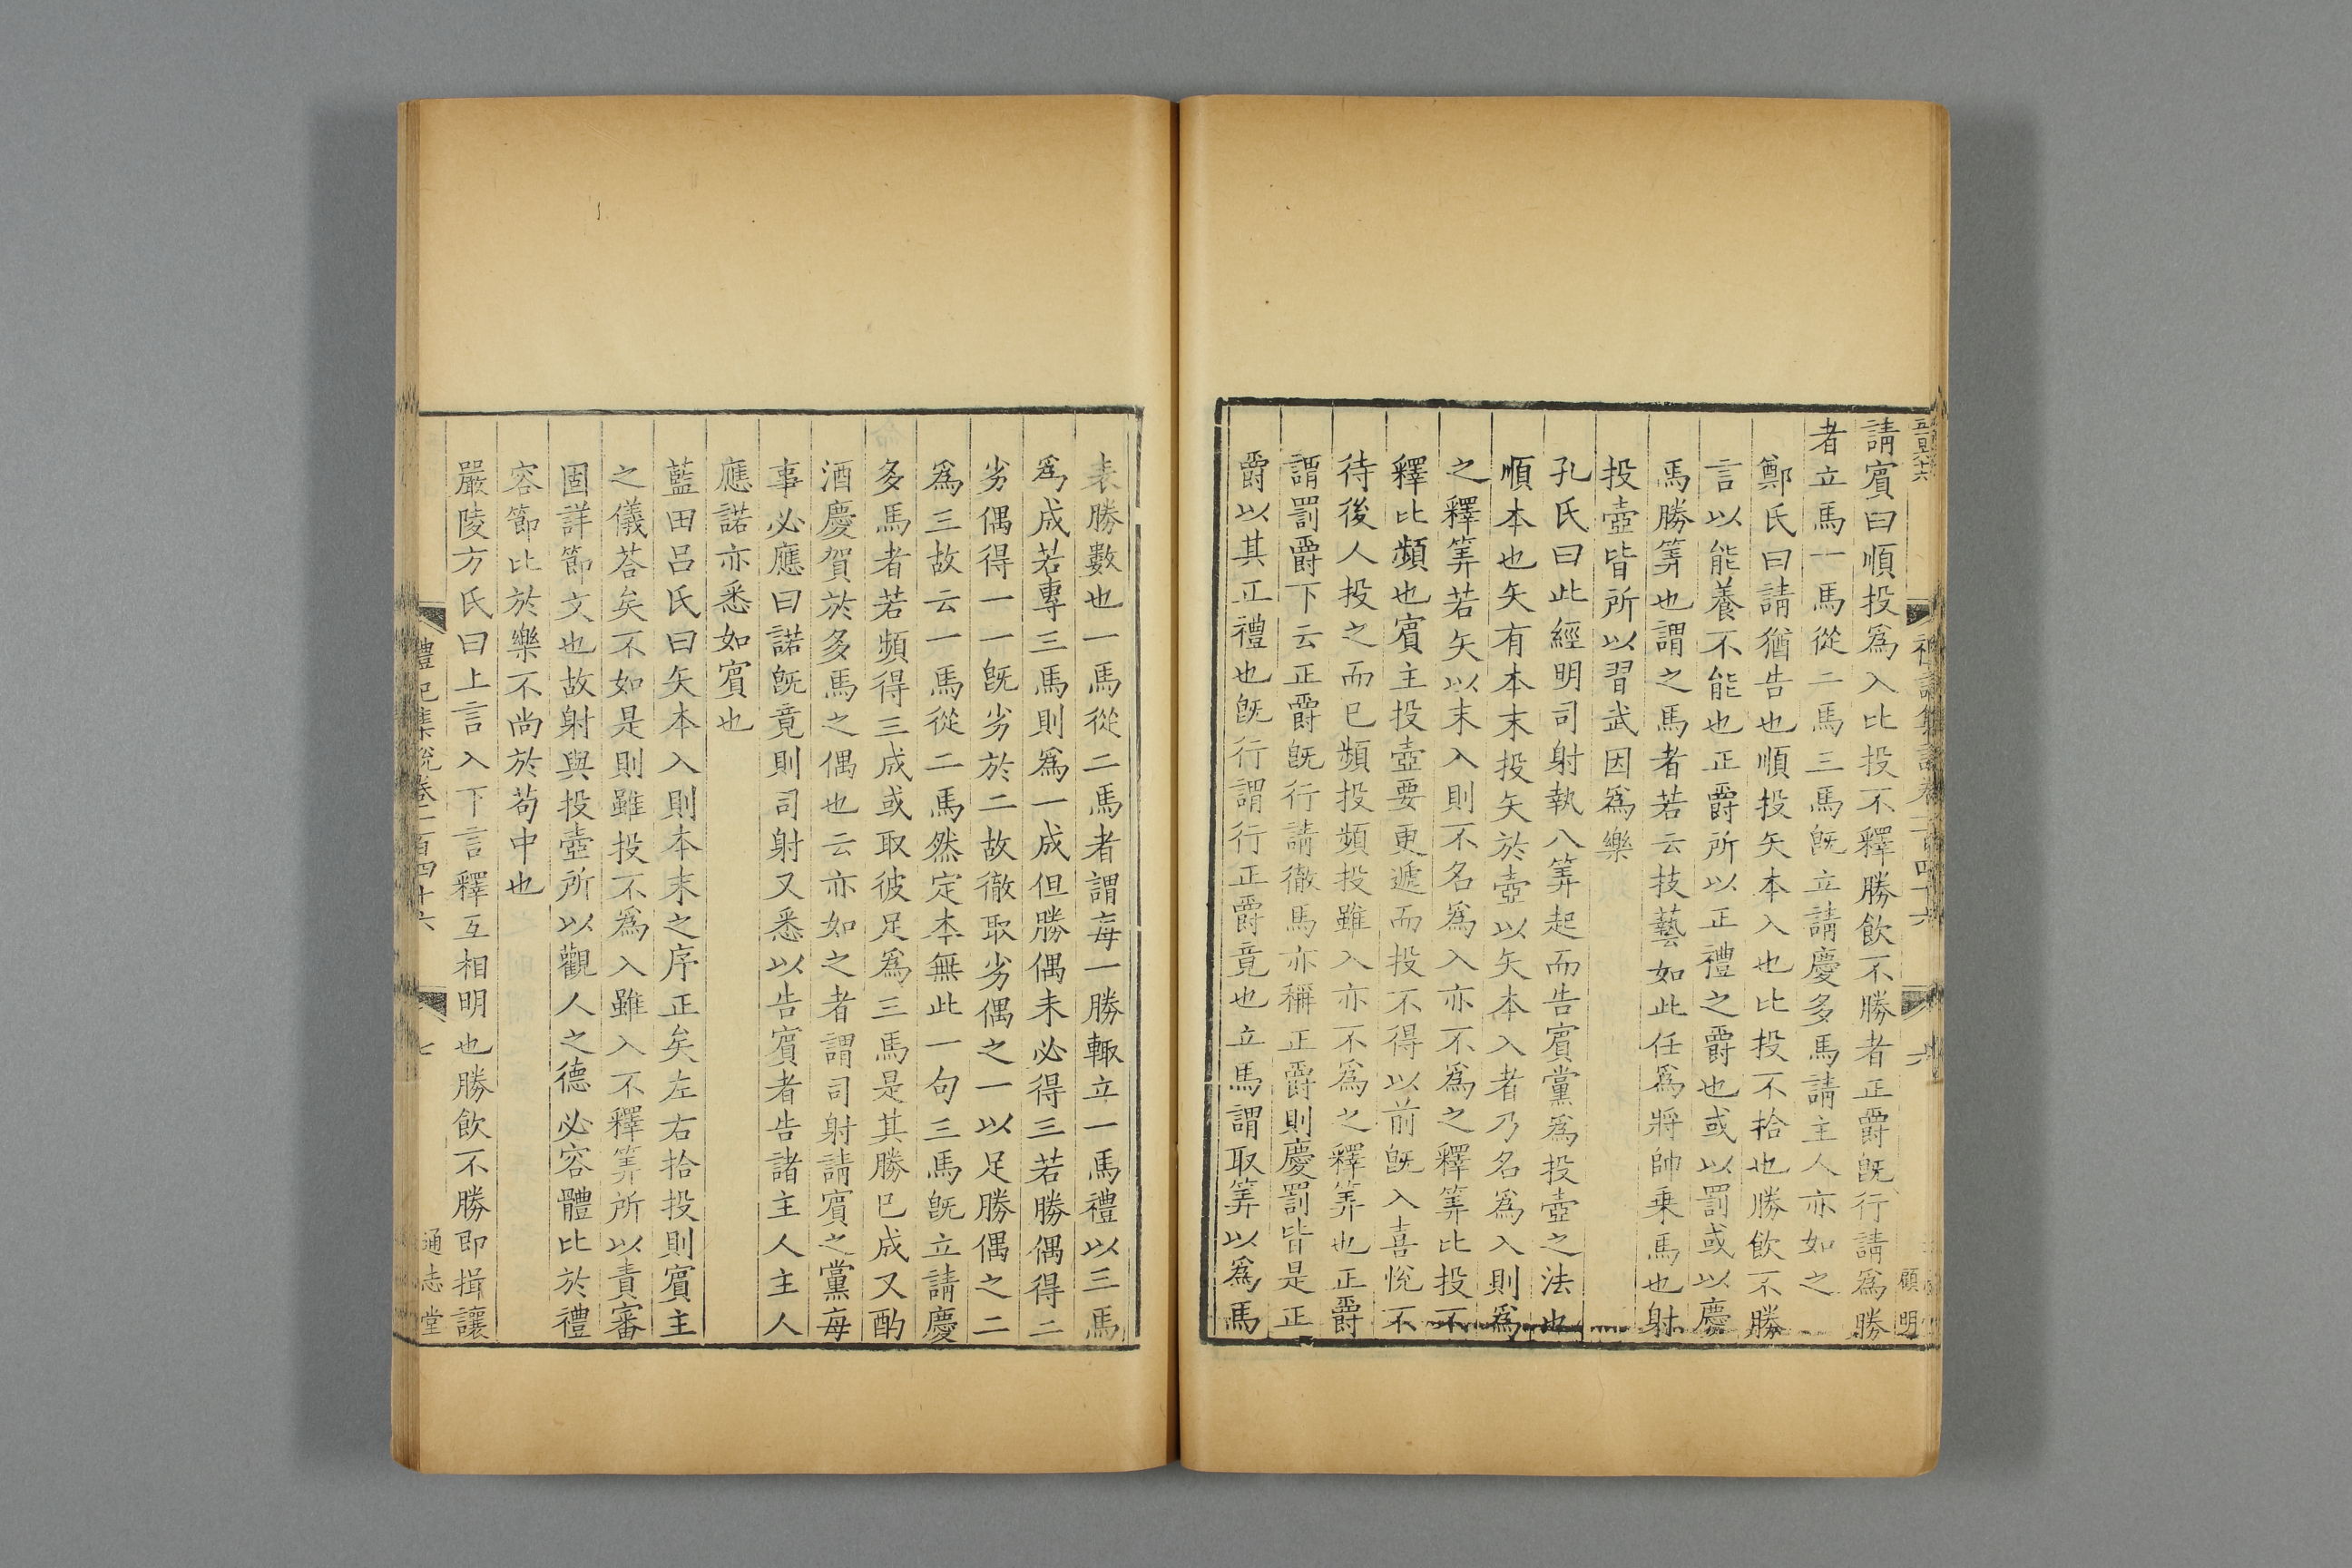 請賓曰順投爲入比投不釋勝飲不勝者正爵既行請爲勝
者立馬一馬從二馬三馬既立請慶多馬請主人亦如之
鄭氏曰請猶告也順投矢本入也比投不拾也勝飲不勝
言以能養不能也正爵所以正禮之爵也或以罰或以慶
馬勝筭也謂之馬者若云技藝如此任爲將帥乗馬也射
投壺皆所以習武因爲樂
孔氏曰此經明司射執八筭起而告賓黨爲投壺之法也
順本也矢有本末投矢於壺以矢本入者乃名爲入則爲
之釋筭若矢以末入則不名爲入亦不爲之釋筭比投不
釋比頻也賓主投壺要更遞而投不得以前既入喜悅不
待後人投之而已頻投頻投雖入亦不爲之釋筭也正爵
謂罰爵下云正爵既行請徹馬亦稱正爵則慶罰皆是正
爵以其正禮也既行謂行正爵竟也立馬謂取筭以爲馬
表勝數也一馬從二馬者謂每一勝輙立一馬禮以三馬
爲成若專三馬則爲一成但勝偶未必得三若勝偶得二
劣偶得一一既劣於二故徹取劣偶之一以足勝偶之二
爲三故云一馬從二馬然定本無此一句三馬既立請慶
多馬者若頻得三成或取彼足爲三馬是其勝已成又酌
酒慶賀於多馬之偶也云亦如之者謂司射請賓之黨每
事必應曰諾既竟則司射又悉以告賓者告諸主人主人
應諾亦悉如賓也
藍田呂氏曰矢本入則本末之序正矣左右拾投則賓主
之儀荅矣不如是則雖投不爲入雖入不釋筭所以責審
固詳節文也故射與投壺所以觀人之德必容體比於禮
容節比於樂不尚於苟中也
嚴陵方氏曰上言入下言釋互相明也勝飲不勝即揖讓
禮記集說卷一百四十六
七
通志堂